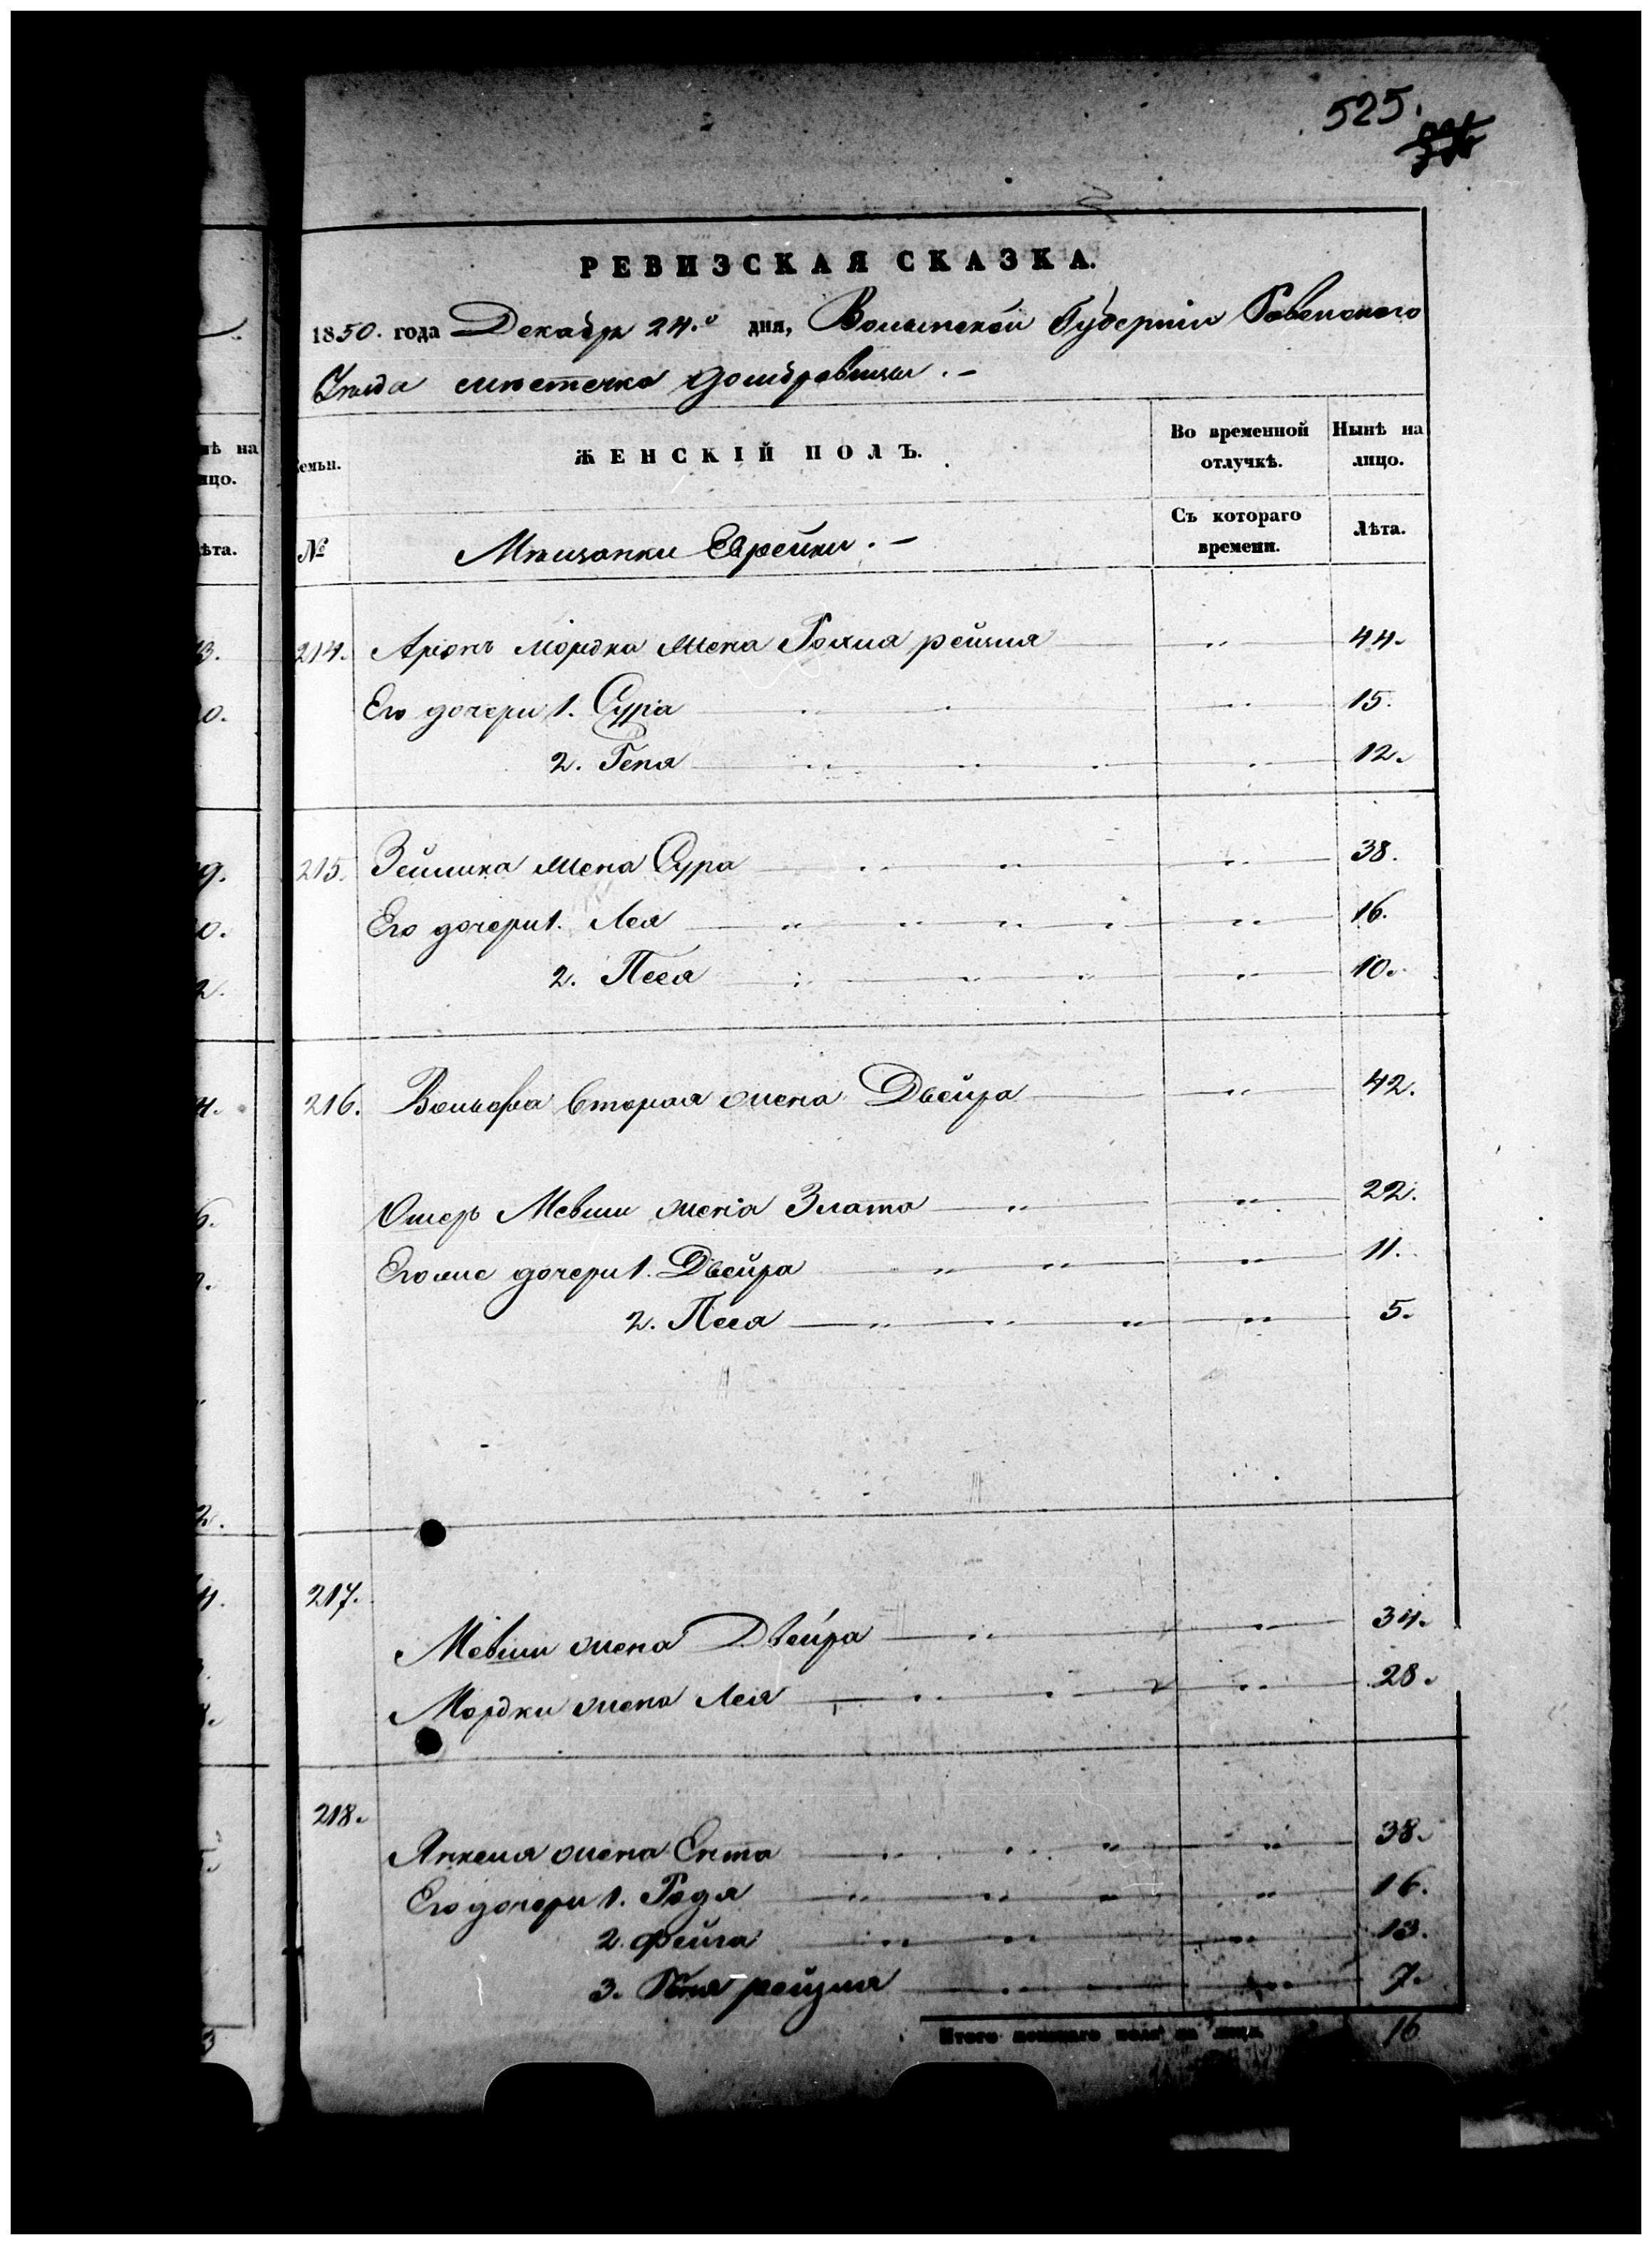 525.
РЕВИЗСКАЯ СКАЗКА.
1850. года Декабря 24.го дня, Волынской Губерніи Ровенского
Уезда местечка Домбровицы. –
Семьи.
ЖЕНСКІЙ ПОЛЪ.
Во временной отлучкѣ.
Нынѣ на лицо.
№
Мѣщанки Еврейки. –
Съ котораго времени.
Лѣта.
214. Аріонъ Мордка жена Рохля рейзля 44.
Его дочери 1. Сура 15.
2. Геня 12.
215. Зейлика жена Сура 38.
Его дочери 1. Лея 16.
2. Песя 10.
216. Вольфа вторая жена Двейра 42.
Ошеръ Мевши жена Злата 22.
Его же дочери 1. Двейра 11.
2. Песя 5.
217.
Мевши жена Двейра 34.
Мордки жена Лея 28.
218.
Янкеля жена Ента 38.
Его дочери 1. Родя 16.
2. Фейга 13.
3. рейзля 7.
Итого женскаго пола на лицо 16